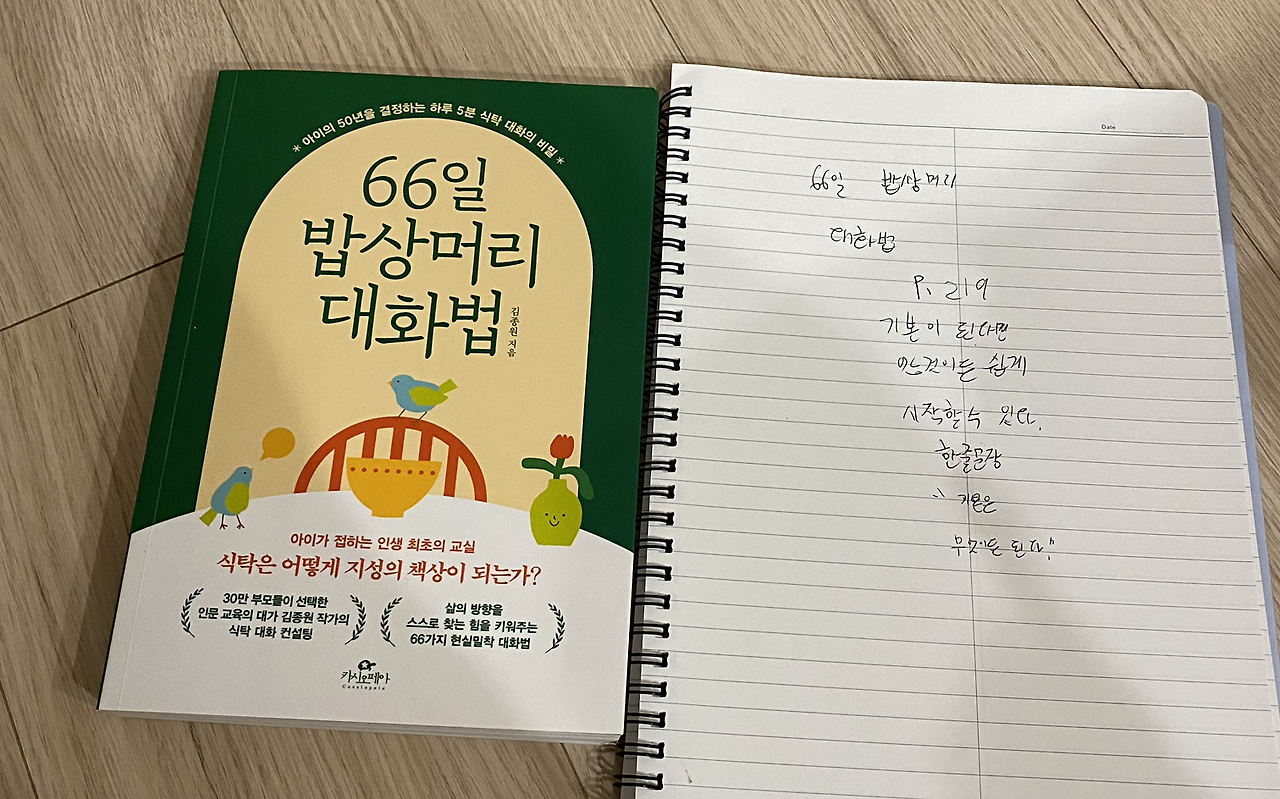 * 아이의 50년을 결정하는 하루 5분 식탁 대화의 비밀 *
66일
밥상머리
대화법
김종원 지음
아이가 접하는 인생 최초의 교실
식탁은 어떻게 지성의 책상이 되는가?
30만 부모들이 선택한
인문 교육의 대가 김종원 작가의
식탁 대화 컨설팅
삶의 방향을
스스로 찾는 힘을 키워주는
66가지 현실밀착 대화법
카시오페아
Cassiopeia
Date
66일 밥상머리
대화법
P. 219
기본이 된다면
쉽게
시작할 수 있다.
한줄문장
" 기본은
무엇이든 된다."